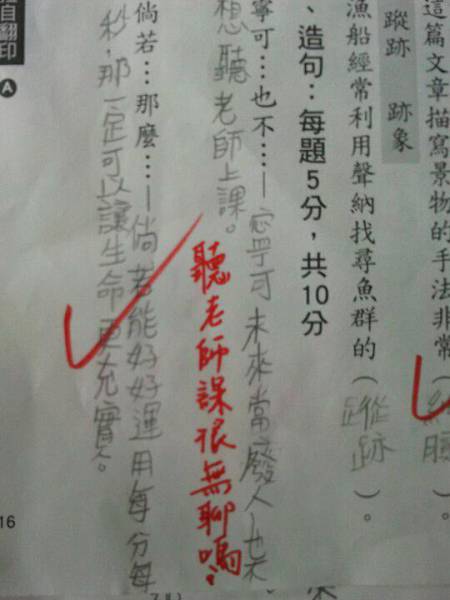 這篇文章描寫景物的手法非常（細膩）。
蹤跡　跡象
漁船經常利用聲納找尋魚群的（蹤跡）。
、造句：每題5分，共10分
寧可…也不…—寧可未來當廢人也不
想聽老師上課。
聽老師課很無聊嗎？
倘若…那麼…—倘若能好好運用每分每
秒，那一定可以讓生命更充實。
翻印
A
16